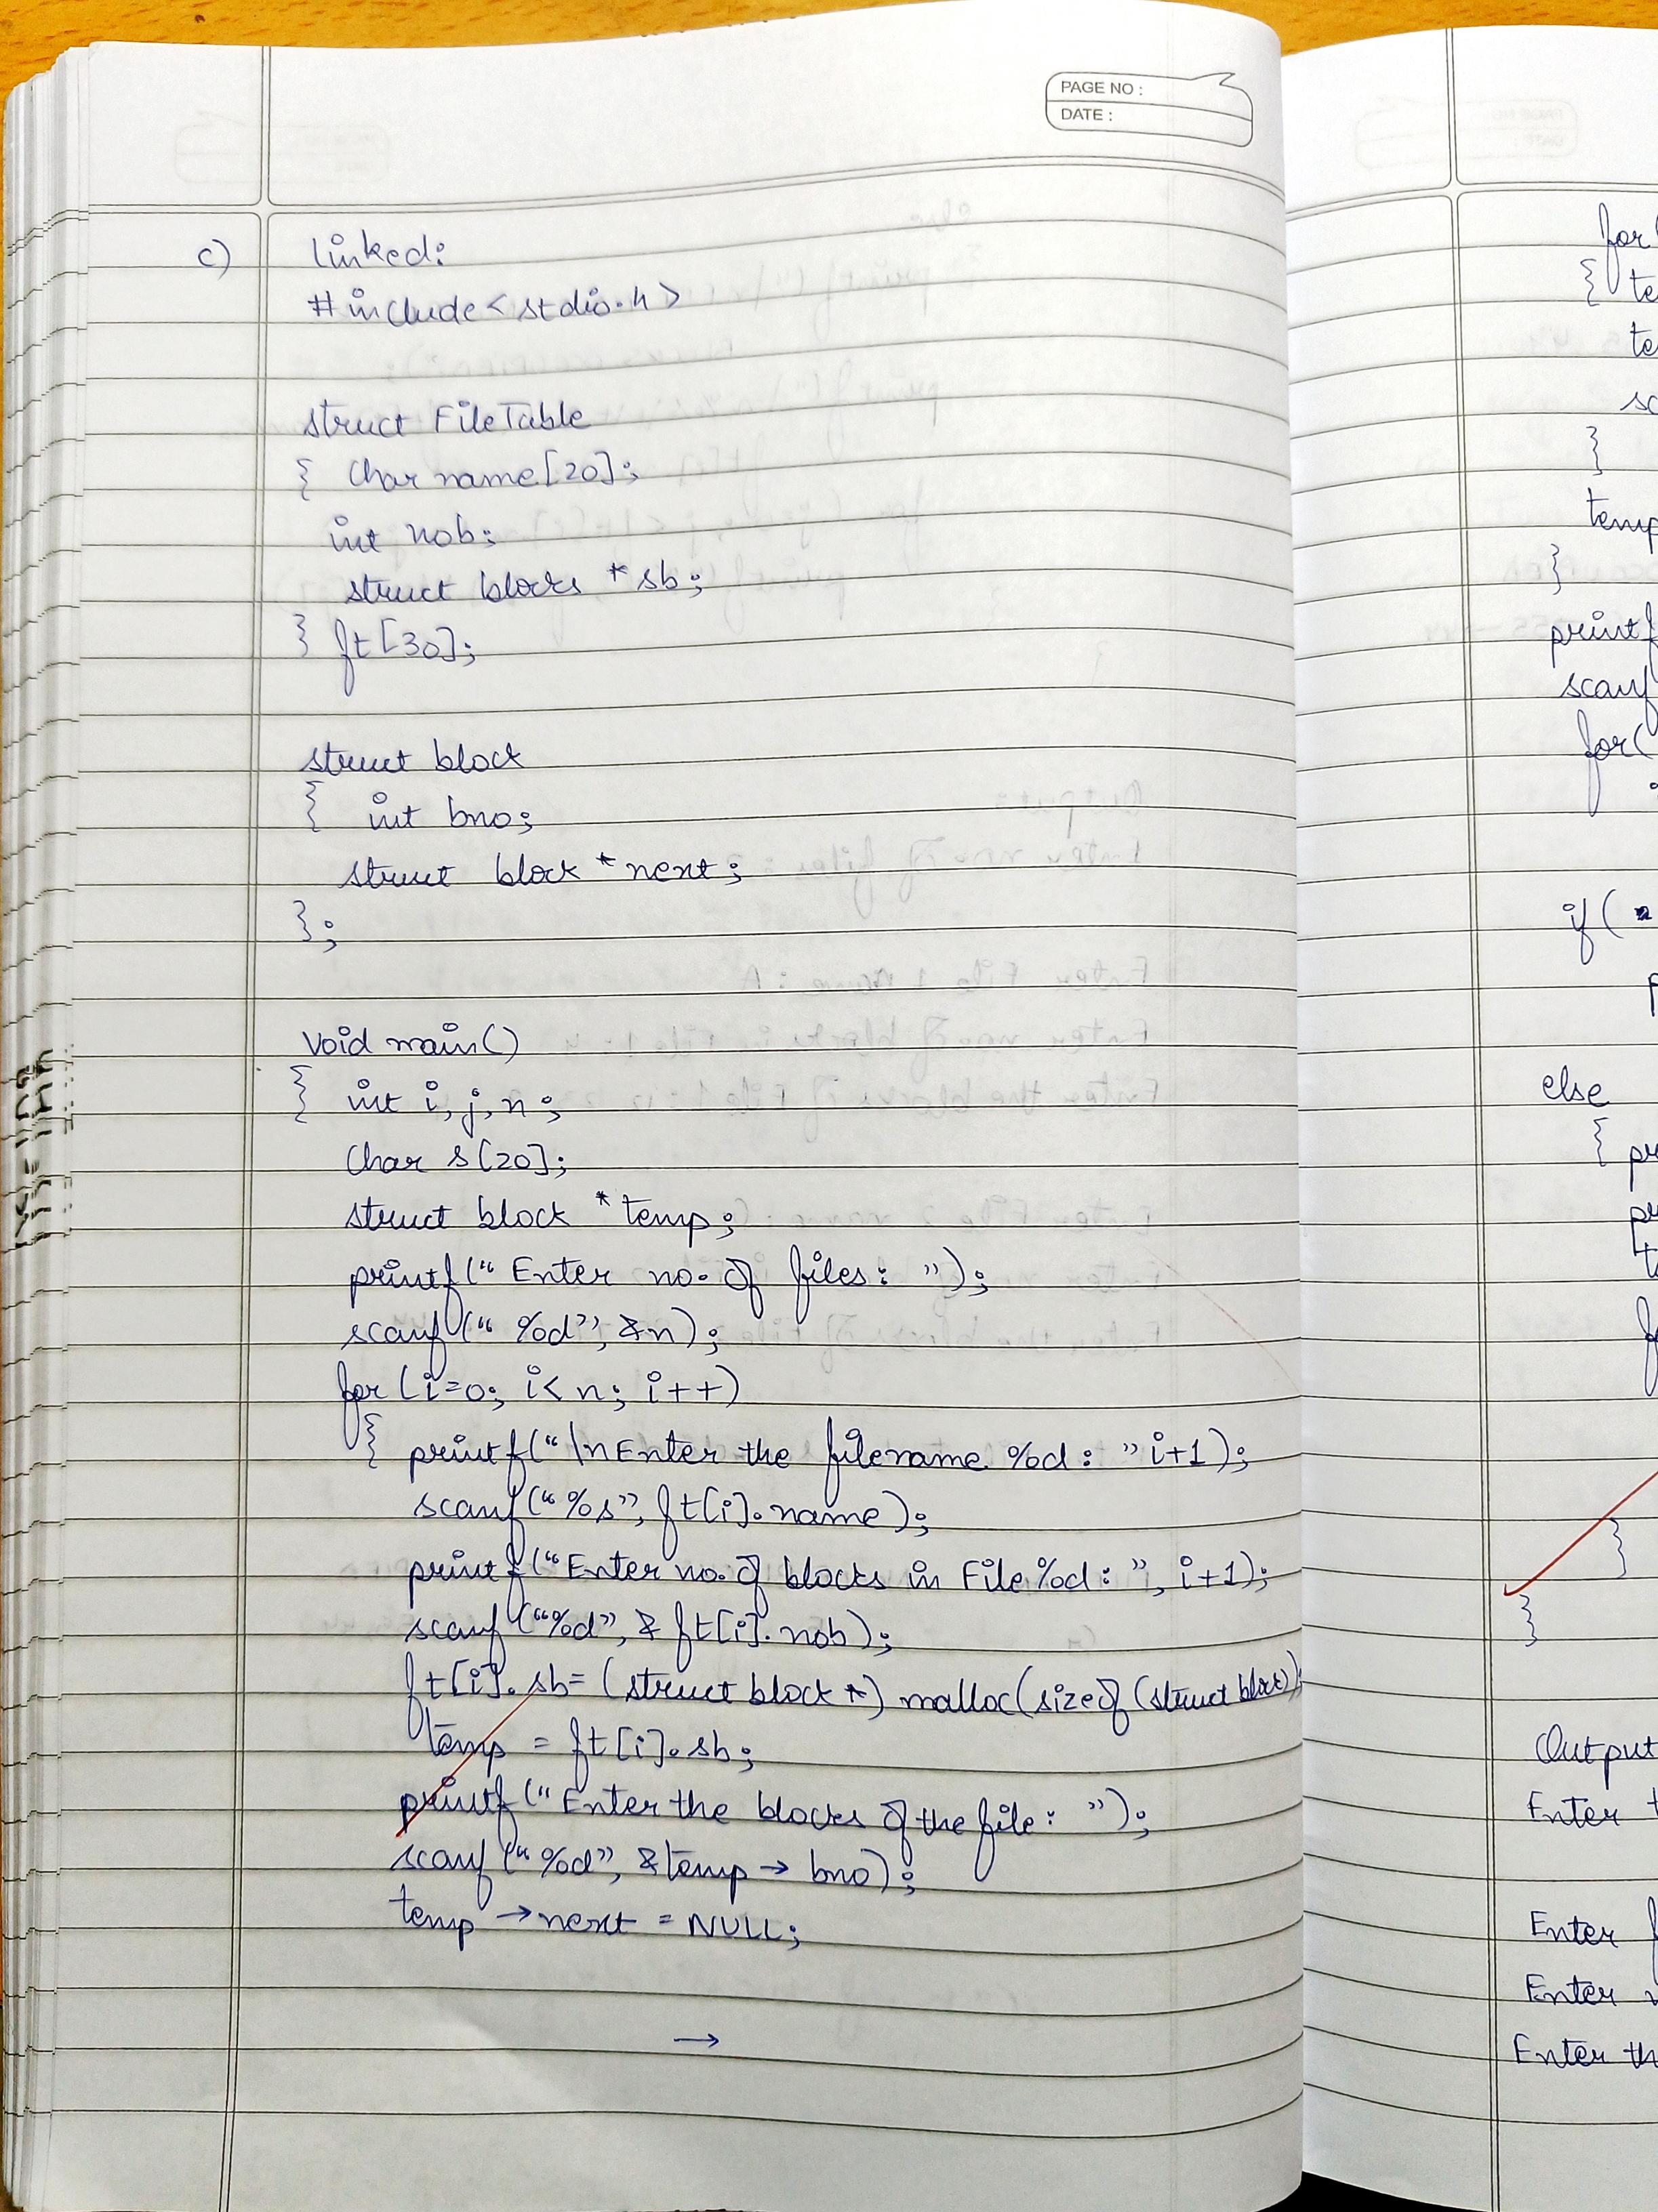 PAGE NO :
DATE :
c) Linked:
#include<stdio.h>
struct FileTable
{ char name[20];
int nob;
struct blocks *sb;
} ft[30];
struct block
{ int bno;
struct block *next;
};
void main()
{ int i, j, n;
char s[20];
struct block *temp;
printf("Enter no. of files: ");
scanf("%d", &n);
for(i=0; i<n; i++)
{ printf("\nEnter the filename %d: "i+1);
scanf("%s", ft[i].name);
printf("Enter no. of blocks in File %d: ", i+1);
scanf("%d", &ft[i].nob);
ft[i].sb=(struct block *) malloc(sizeof(struct block));
temp = ft[i].sb;
printf("Enter the blocks of the file: ");
scanf("%d", &temp→bno);
temp→next = NULL;
→
for(
{ te
te
sc
}
temp
}
printf
scanf
for(
if(
p
else
{ pr
pr
t
f
}
}
Output
Enter t
Enter f
Enter
Enter th